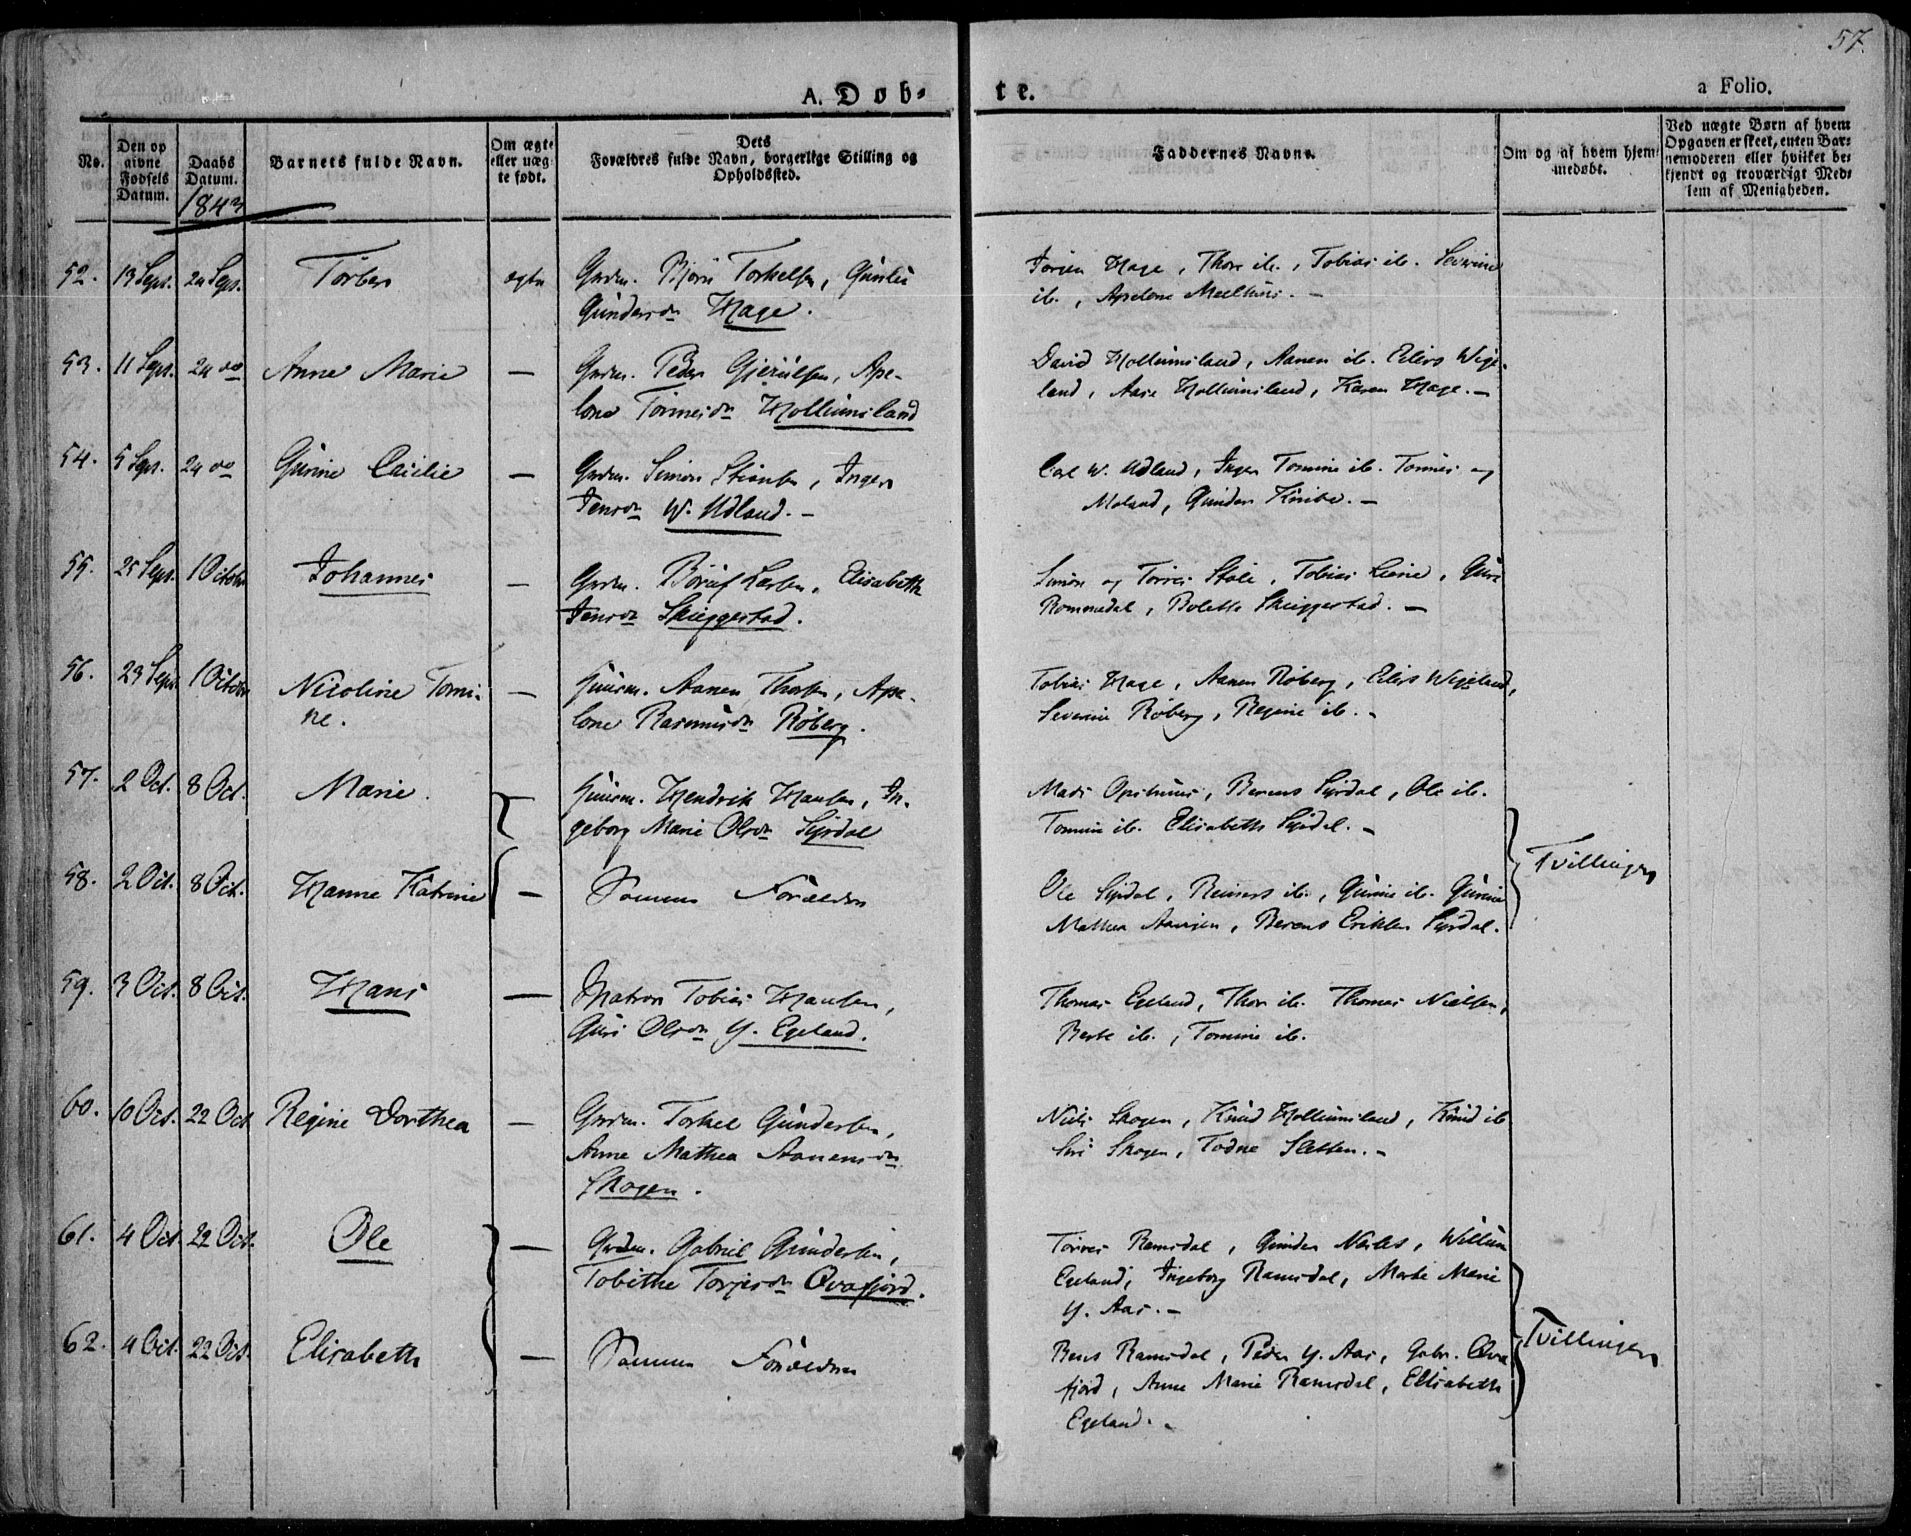 57.
A. Døb-
te.
a Folio.
No.
Den op
givne
Fødsels
Datum.
Daabs
Datum.
1843
Barnets fulde Navn.
Om ægte
eller uæg-
te født.
Dets
Forældres fulde Navn, borgerlige Stilling og
Opholdssted.
Faddernes Navne.
Om og af hvem hjem-
medøbt.
Ved uægte Børn af hvem
Opgaven er skeet, enten Bar-
nemoderen eller hvilket be-
kjendt og troværdigt Med-
lem af Menigheden.
52. 13 Sept. 24 Sept. Torber ægte Grdm. Bjørn Torkelsen, Gunild
Gundersdn Hage.
Jørgen Hage, Thore ib., Tobias ib. Severine
ib., Apelone Meelhuus. -
53. 11 Sept. 24 do Anne Marie — Grdm. Peder Gjerulsen, Ape-
lone Tønnesdn Hollumsland
David Hollumsland, Aanen ib. Eilers Wige-
land, Aase Hollumsland, Karen Hage. -
54. 5 Sept. 24 do Gurine Cecilie — Grdm. Simon Stiansen, Inger
Jensdn W. Udland. -
Carl W. Udland, Inger Tomine ib. Tønnes og
Moland, Gunder Knibe. -
55. 25 Sept. 1 October Johannes — Grdm. Børuf Larsen, Elisabeth
Jensdn Skieggestad.
Simon og Torres Støle, Tobias Liene, Guri
Rommedal, Bolette Skieggestad. -
56. 23 Sept. 1 October Nicoline Tomi-
ne. — Huusm. Aanen Thorsen, Ape-
lone Rasmusdn Røberg.
Tobias Hage, Aanen Røberg, Eilers Wigeland,
Severine Røberg, Regine ib. -
57. 2 Oct. 8 Oct. Marie. — Huusm. Hendrik Hansen, In-
geborg Marie Olsdn Syrdal
Mads Opshuus, Berens Syrdal, Ole ib.
Tomine ib. Elisabeth Syrdal. -
Tvillinger
58. 2 Oct. 8 Oct. Hanne Katrine — Samme Forældre
Ole Syrdal, Reiners ib., Gunie ib. Gurine
Mathea Aavigen, Berens Eriksen Syrdal.
59. 3 Oct. 8 Oct. Hans — Matros Tobias Hansen,
Guri Olsdn Y. Egeland.
Thomas Egeland, Thor ib. Thomas Nielsen,
Berte ib., Tomine ib.
60. 10 Oct. 22 Oct Regine Dorthea — Grdm. Torkel Gundersen,
Anne Mathea Aanensdn
Skogen.
Niels Skogen, Knud Hollumsland, Knud ib
Siri Skogen, Todne Sletten. -
61. 4 Oct. 22 Oct. Ole — Grdm. Gabriel Gundersen,
Tobithe Torjesdn Qvafjord.
Torres Ramsdal, Gunder Næsles, Willum
Egeland, Ingeborg Ramsdal, Marte Marie
Y. Aas. -
Tvillinger
62. 4 Oct. 22 Oct. Elisabeth — Samme Forældre
Bent Ramsdal, Peder Y. Aas, Gabr. Qva
fjord, Anne Marie Ramsdal, Elisabeth
Egeland. -